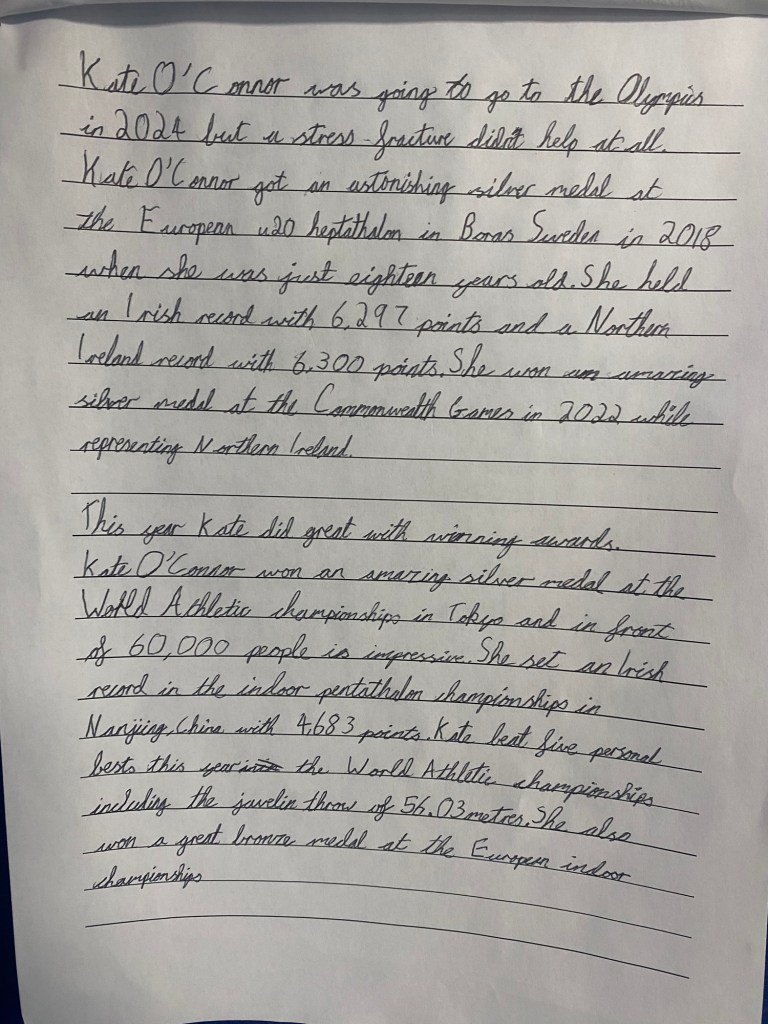 Kate O'Connor was going to go to the Olympics
in 2024 but a stress fracture didn't help at all.
Kate O'Connor got an astonishing silver medal at
the European u20 heptathalon in Boras Sweden in 2018
when she was just eighteen years old. She held
an Irish record with 6,297 points and a Northern
Ireland record with 6,300 points. She won an amazing
silver medal at the Commonwealth Games in 2022 while
representing Northern Ireland.
This year Kate did great with winning awards.
Kate O'Connor won an amazing silver medal at the
World Athletic championships in Tokyo and in front
of 60,000 people is impressive. She set an Irish
record in the indoor pentathalon championships in
Nanjiing, China with 4683 points. Kate beat five personal
bests this year the World Athletic championships
including the javelin throw of 56.03 metres. She also
won a great bronze medal at the European indoor
championships